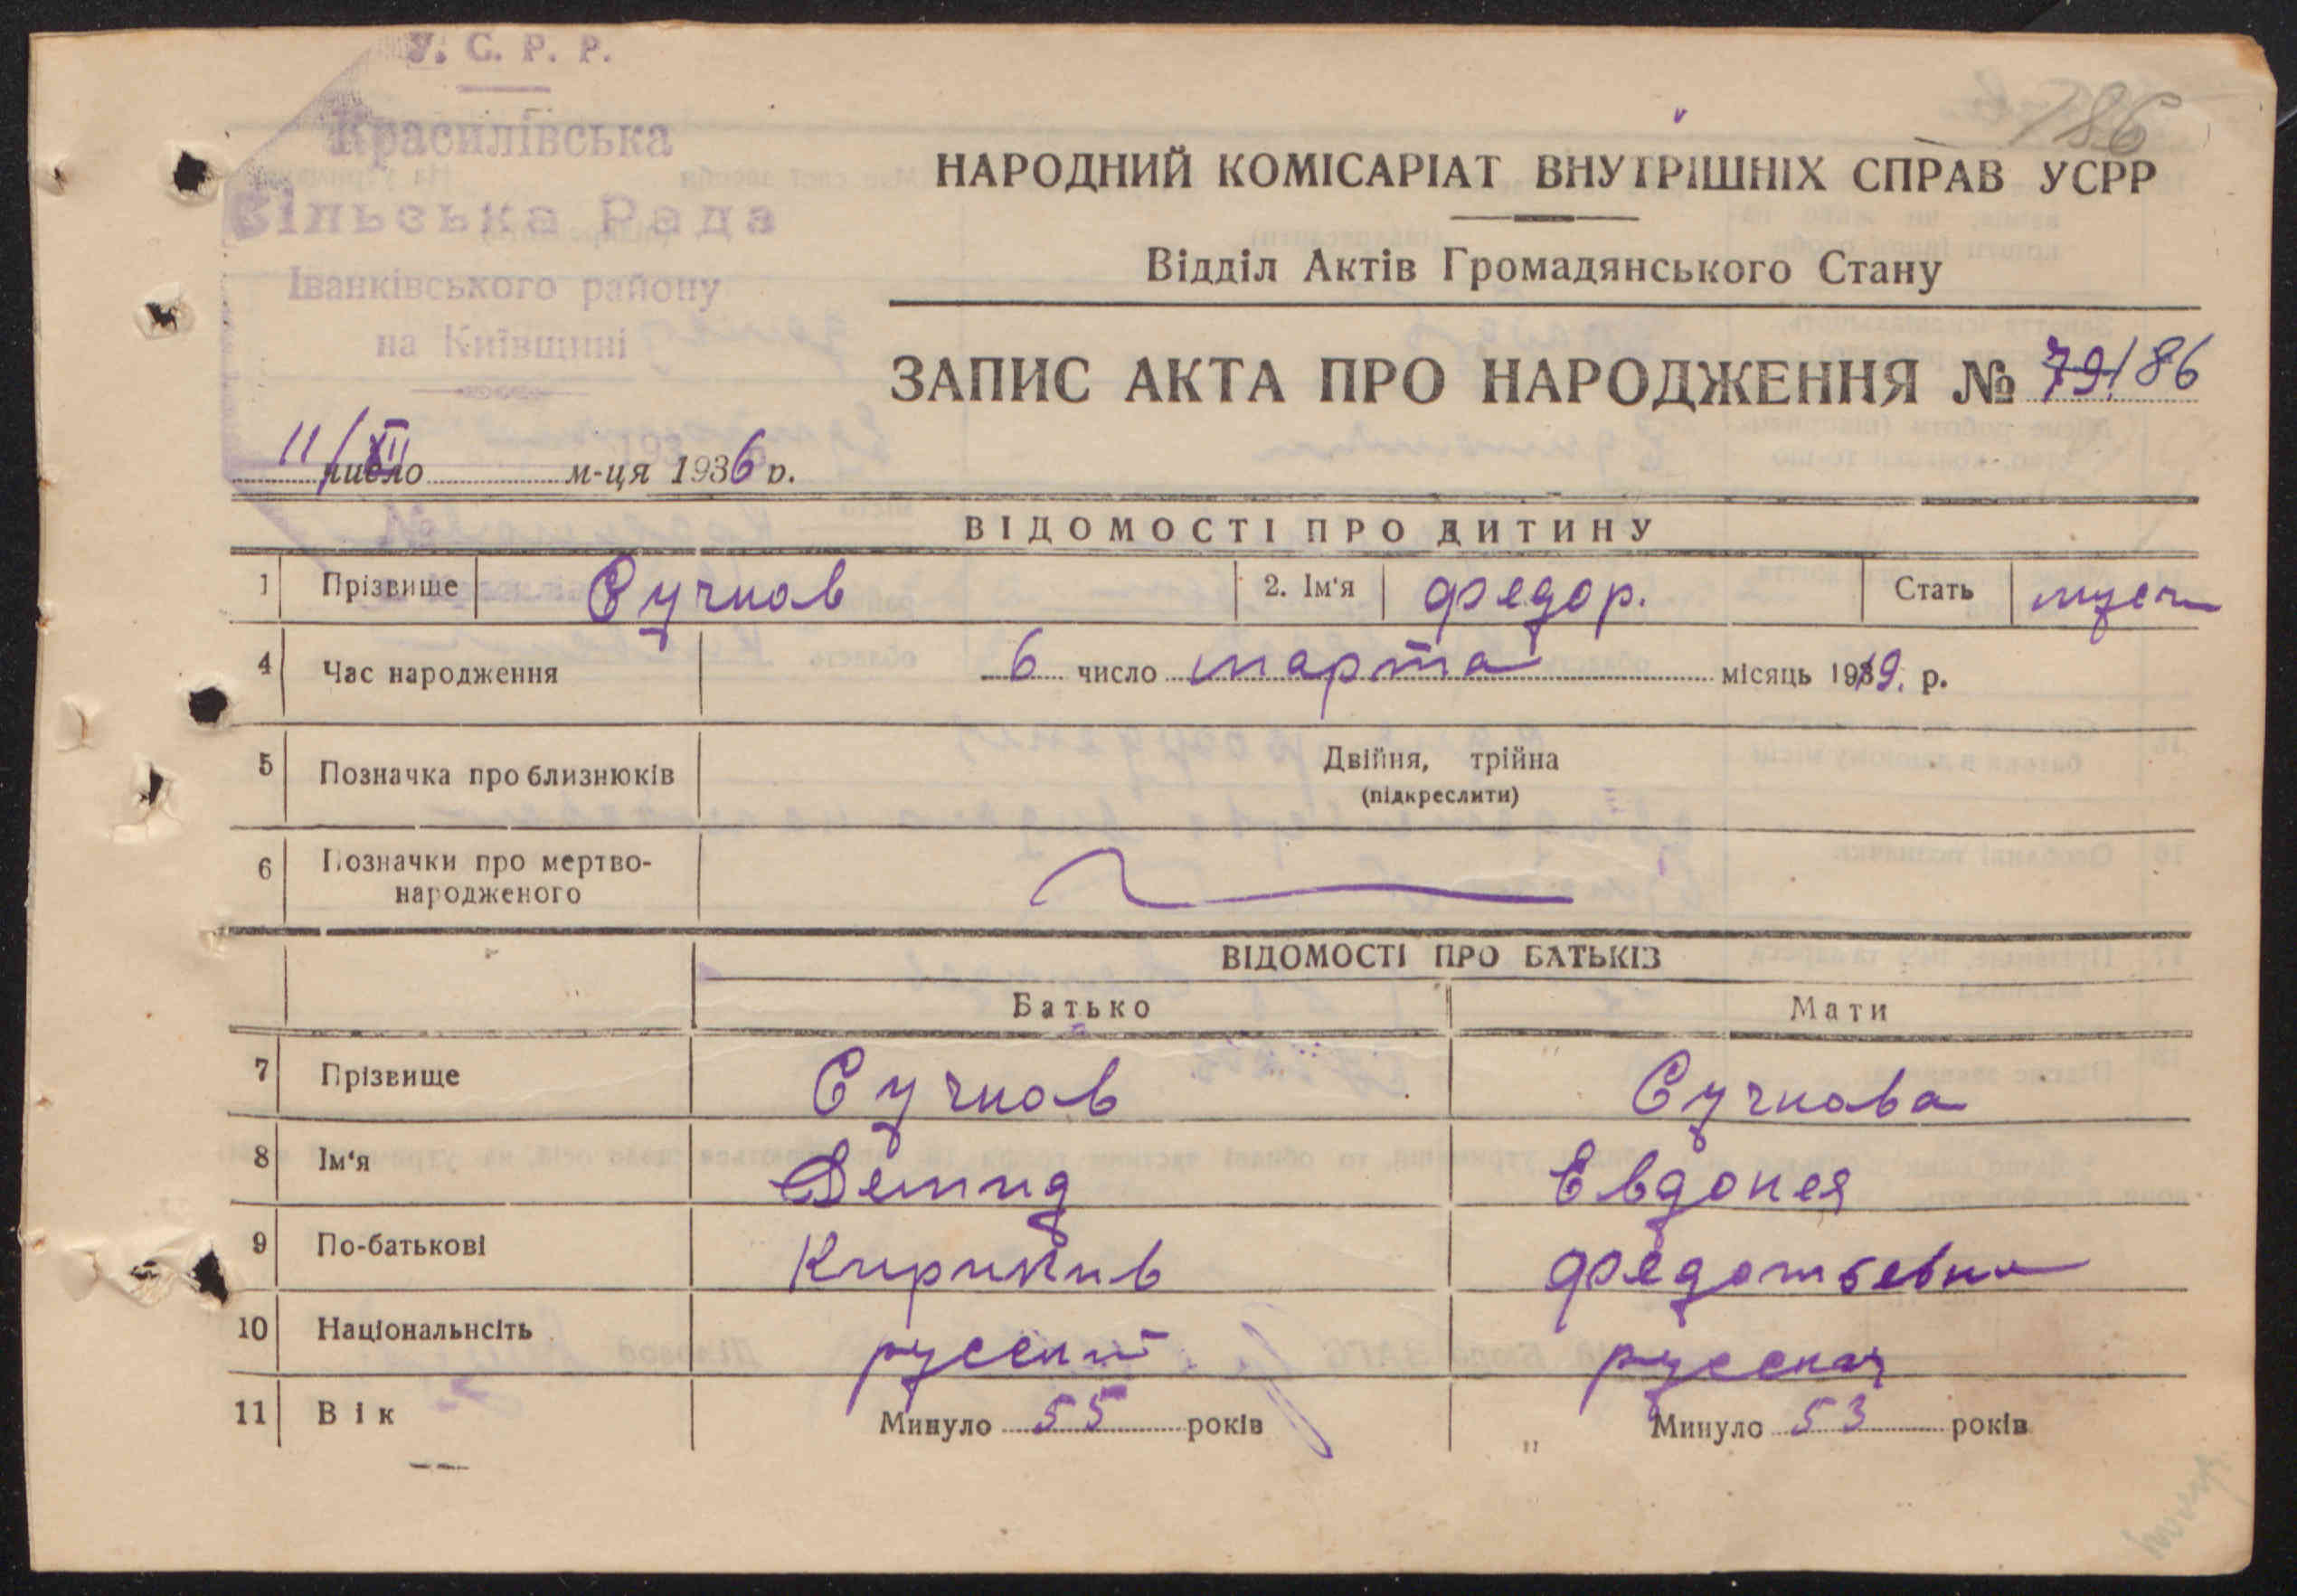 У. С. Р. Р.
Красилівська
Сільська Рада
Іванківського району
на Київщині
186
НАРОДНИЙ КОМІСАРІАТ ВНУТРІШНІХ СПРАВ УСРР
Відділ Актів Громадянського Стану
ЗАПИС АКТА ПРО НАРОДЖЕННЯ № 79/86
11/XII число м-ця 1936 р.
ВІДОМОСТІ ПРО ДИТИНУ
1 Прізвище Сучков 2. Ім'я Федор. Стать муж
4 Час народження 6 число марта місяць 1919. р.
5 Позначка про близнюків Двійня, трійна
(підкреслити)
6 Позначки про мертво-
народженого
ВІДОМОСТІ ПРО БАТЬКІВ
Батько Мати
7 Прізвище Сучков Сучкова
8 Ім'я Демид Евдокея
9 По-батькові Кирикив Федотьевна
10 Національнсіть русский русская
11 Вік Минуло 55 років Минуло 53 років